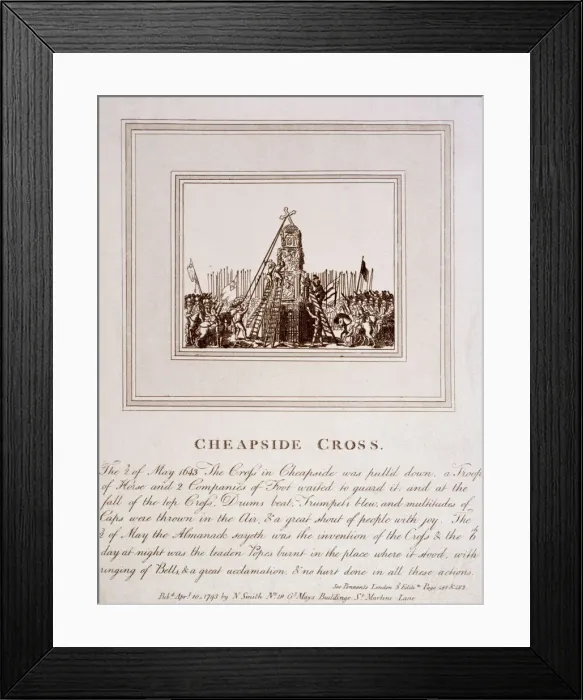 CHEAPSIDE CROSS.
The 2 of May 1643 The Croſs in Cheapside was pull'd down, a Troop
of Horse and 2 Companies of Foot waited to guard it, and at the
fall of the top Croſs, Drums beat, Trumpets blew, and multitudes of
Caps were thrown in the Air, & a great shout of people with joy. The
2 of May the Almanack sayeth was the invention of the Croſs & the 6
day at night was the leaden Popes burnt in the place where it stood, with
ringing of Bells, & a great acclamation & no hurt done in all these actions.
See Pennants London Edit.n Page
Pub.d Apr.l 10, 1793 by N. Smith No. 18 Gt. Mays Buildings St. Martins Lane